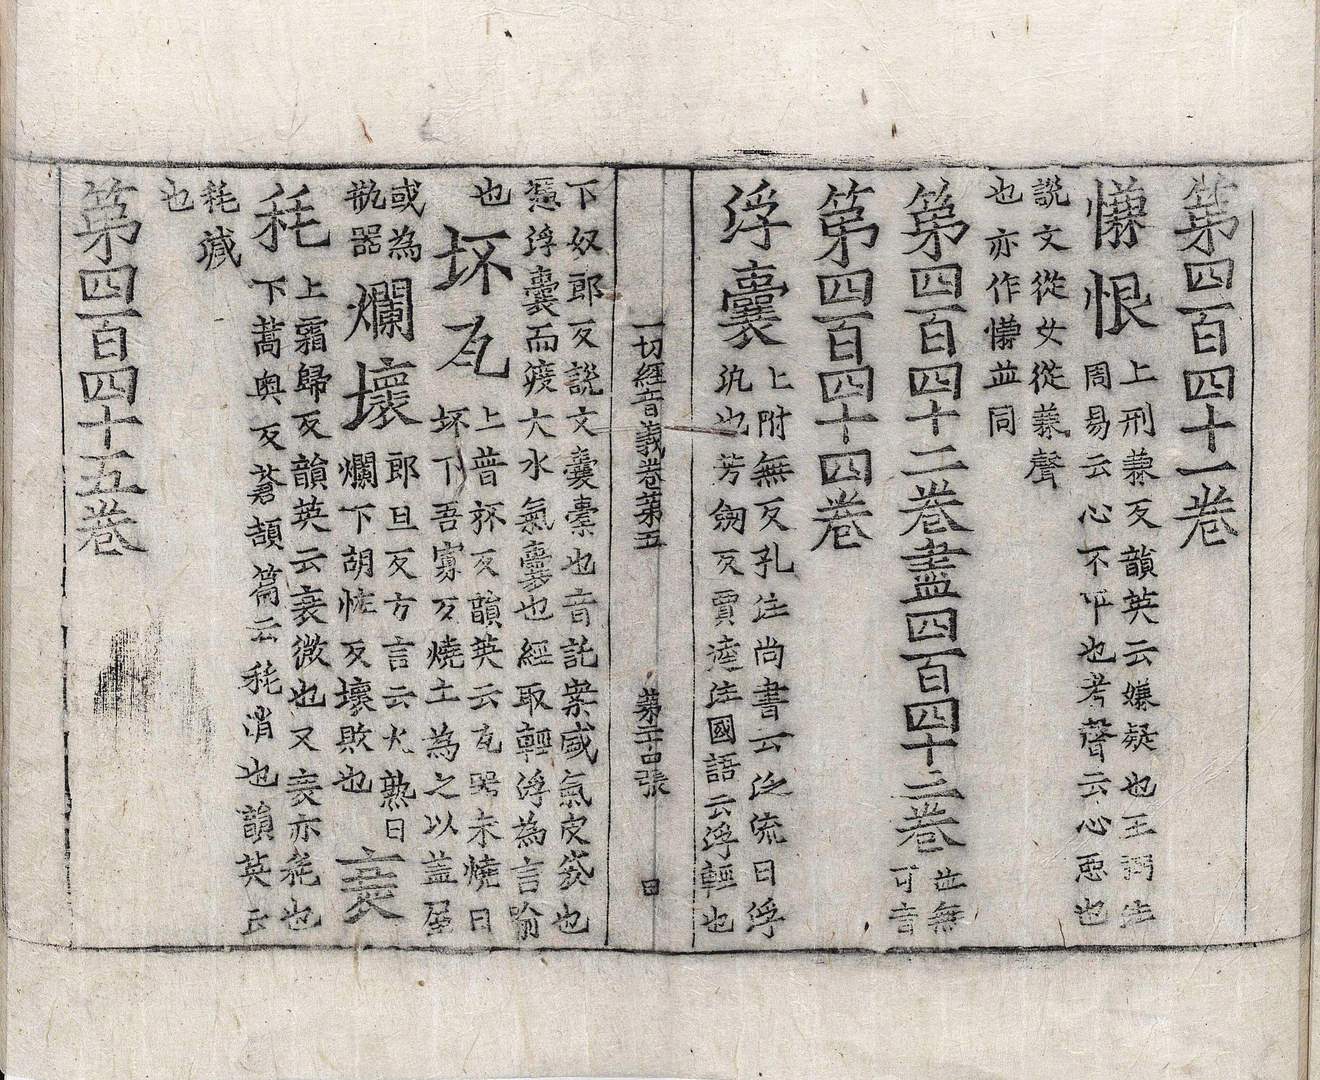 第四百四十一卷
慊恨 上刑兼反韻英云嫌疑也王弼注
周易云心不平也考聲云心惡也
說文從女從兼聲
也亦作慊並同
第四百四十二卷盡四百四十三卷 並無
可音
第四百四十四卷
浮囊 上附無反孔注尚書云泛流曰浮
汎也芳劒反賈逵注國語云浮輕也
一切經音義卷第五 第二十四張 日
下奴郎反說文囊橐也音託案咸氣皮袋也
憑浮囊而渡大水氣囊也經取輕浮為言喻
也 坏瓦 上普杯反韻英云瓦器未燒曰
坏下吾寡反燒土為之以蓋屋
或為
瓶器 爛壞 郎旦反方言云火熟曰
爛下胡恠反壞敗也 衰
秏 上霜歸反韻英云衰微也又衰亦秏也
下蒿奥反蒼頡篇云秏消也韻英云
秏減
也
第四百四十五卷